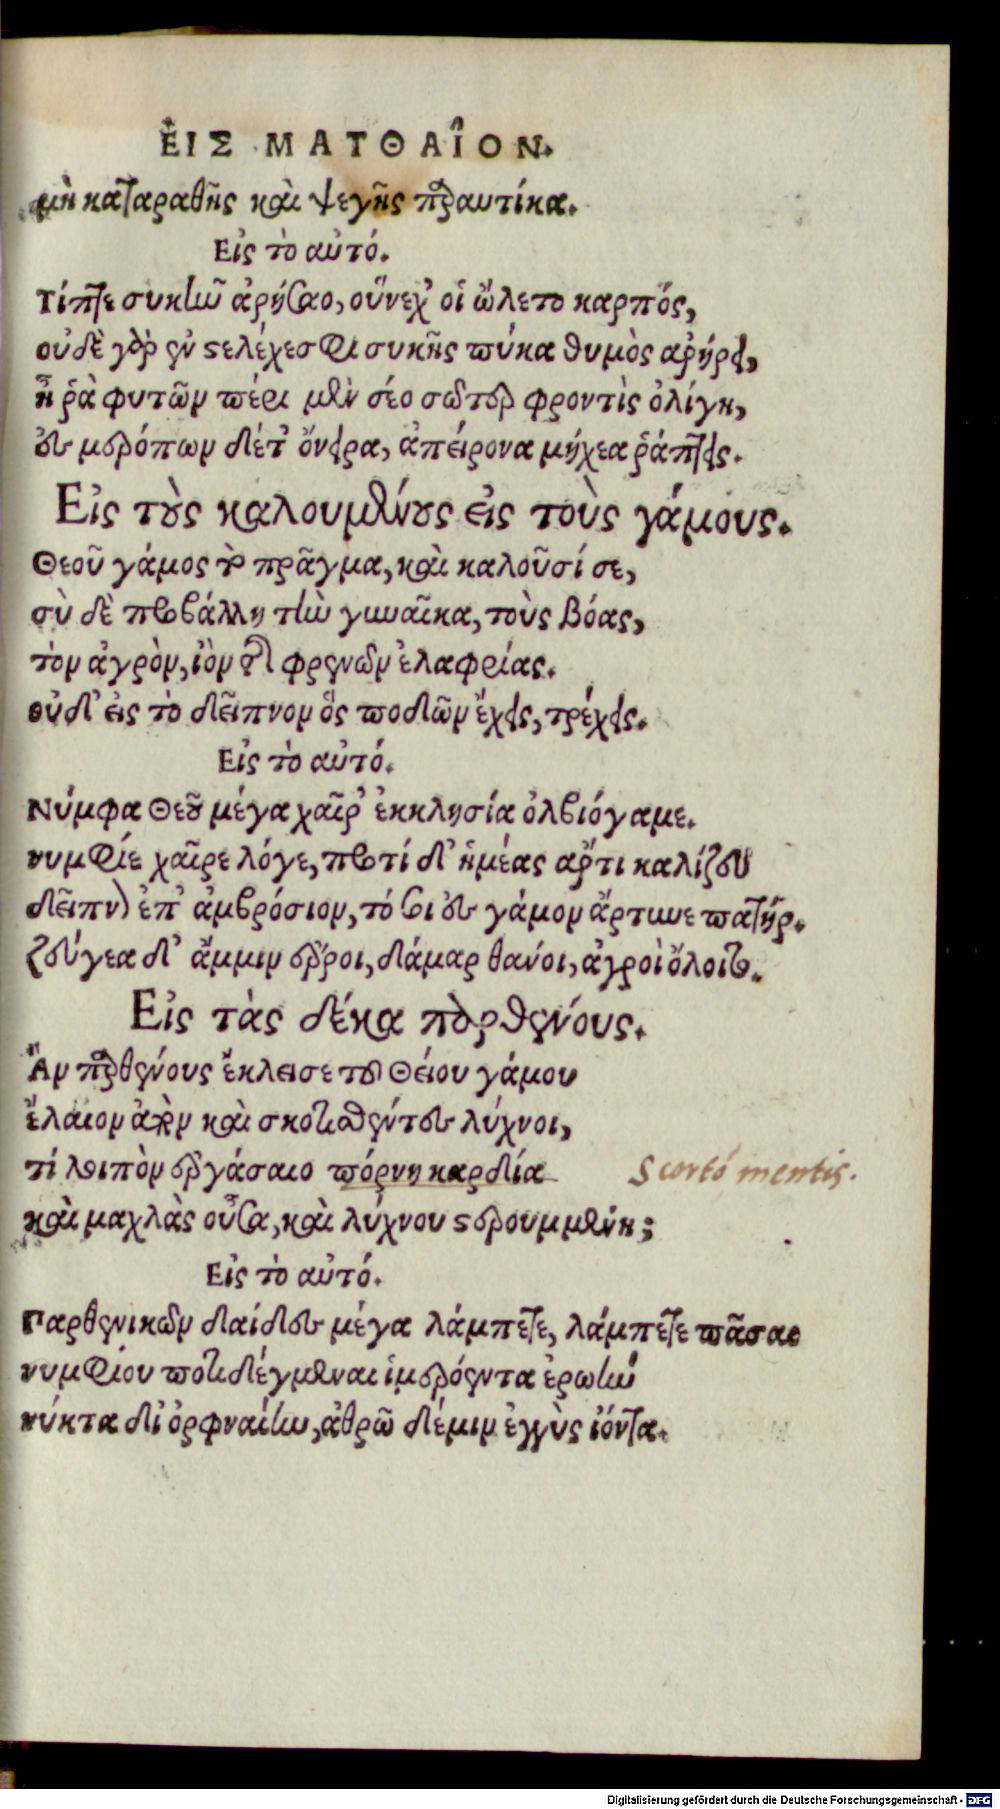 ΕΙΣ ΜΑΤΘΑῖΟΝ.
μὴ καταραθῆς καὶ ψεγῆς παραυτίκα.
Εἰς τὸ αὐτό.
Τίπτε συκῆν ἀρήσαο, οὕνεχ' οἱ ὤλετο καρπός,
οὐδὲ γὰρ ἐν στελέχεσφι συκῆς πύκα θυμὸς ἀρήρει,
ἦ ῥὰ φυτῶν πέρι μὲν σέο σῶτερ φροντὶς ὀλίγη,
ἐκ μερόπων δέ τ' ὄνειρα, ἀπείρονα μήχεα ῥάπτεις.
Εἰς τοὺς καλουμένους εἰς τοὺς γάμους.
Θεοῦ γάμος τὸ πρᾶγμα, καὶ καλοῦσί σε,
σὺ δὲ προβάλλῃ τὴν γυναῖκα, τοὺς βόας,
τὸν ἀγρὸν, ἰὸν τῆς φρενῶν ἐλαφρίας.
οὐδ' εἰς τὸ δεῖπνον ὃς ποδῶν ἔχεις, τρέχεις.
Εἰς τὸ αὐτό.
Νύμφα Θεοῦ μέγα χαῖρ' ἐκκλησία ὀλβιόγαμε.
νυμφίε χαῖρε λόγε, προτί δ' ἡμέας ἄρτι καλίζευ
δεῖπνον ἐπ' ἀμβρόσιον, τό σοι ἐκ γάμον ἄρτυνε πατήρ.
ζεύγεα δ' ἄμμιν ἔρροι, δάμαρ θάνοι, ἀγροὶ ὄλοιντο.
Εἰς τὰς δέκα παρθένους.
Ἂν παρθένους ἔκλεισε τοῦ Θείου γάμου
ἔλαιον ἀργὸν καὶ σκοτισθέντες λύχνοι,
τί λοιπὸν ἐργάσαιο πόρνη καρδία
Scorto mentis.
καὶ μαχλὰς οὖσα, καὶ λύχνου στερουμένη;
Εἰς τὸ αὐτό.
Παρθενικῶν δαίδες μέγα λάμπετε, λάμπετε πᾶσαι
νυμφίου ποτιδέγμεναι ἱμερόεντα ἐρωὴν
νύκτα δι' ὀρφναίην, ἀθρῶ δέ μιν ἐγγὺς ἰόντα.
Digitalisierung gefördert durch die Deutsche Forschungsgemeinschaft - DFG